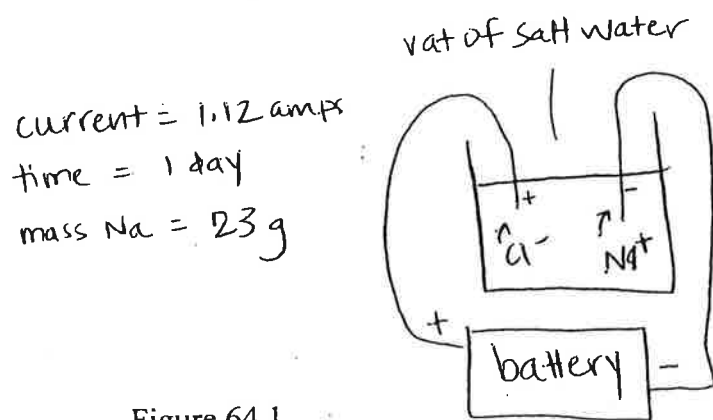 vat of salt water
current = 1.12 amps
time = 1 day
mass Na = 23 g
+
-
Cl⁻
Na⁺
+
battery
-
Figure 64.1